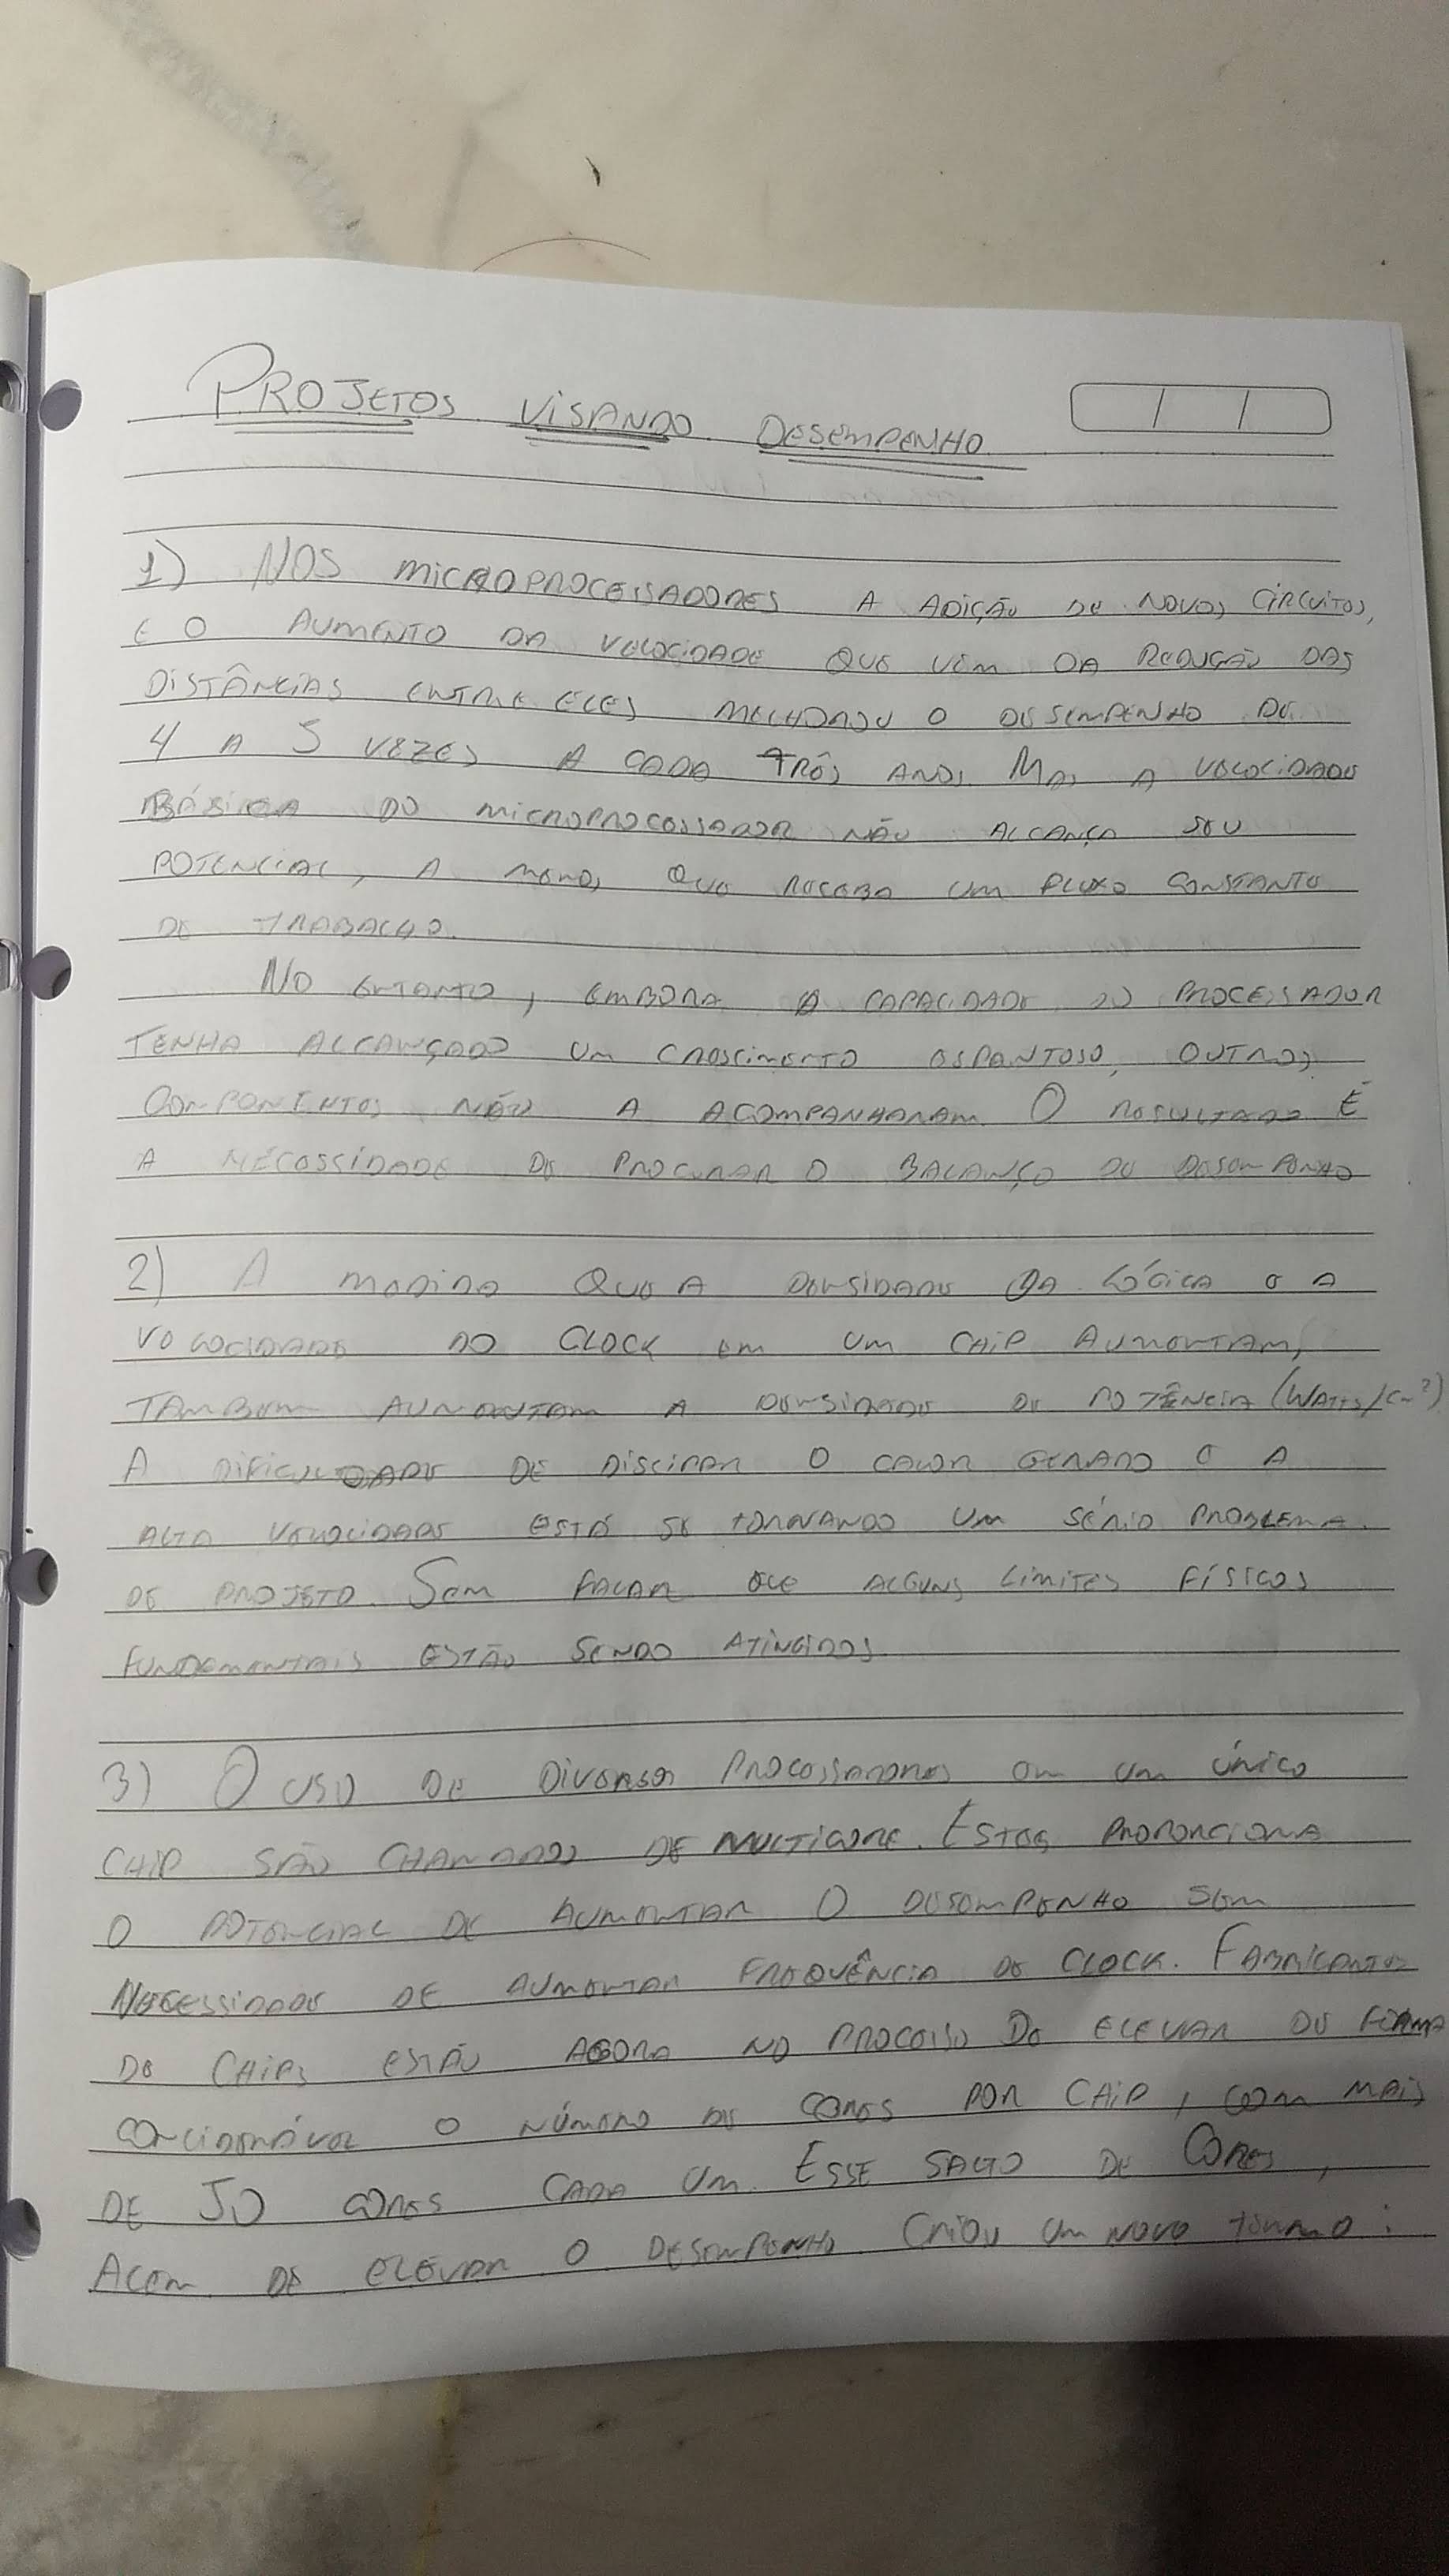 PROJETOS VISANDO DESEMPENHO
1) NOS MICROPROCESSADORES A ADIÇÃO DE NOVOS CIRCUITOS,
E O AUMENTO DA VELOCIDADE QUE VEM DA REDUÇÃO DAS
DISTÂNCIAS ENTRE ELES MELHOROU O DESEMPENHO DE
4 A 5 VEZES A CADA TRÊS ANOS. MAS A VELOCIDADE
BÁSICA DO MICROPROCESSADOR NÃO ALCANÇA SEU
POTENCIAL, A MENOS QUE RECEBA UM FLUXO CONSTANTE
DE TRABALHO.
NO ENTANTO, EMBORA A CAPACIDADE DO PROCESSADOR
TENHA ALCANÇADO UM CRESCIMENTO ESPANTOSO, OUTROS
COMPONENTES NÃO A ACOMPANHARAM. O RESULTADO É
A NECESSIDADE DE PROCURAR O BALANÇO DO DESEMPENHO
2) A MEDIDA QUE A DENSIDADE DA LÓGICA E A
VELOCIDADE DO CLOCK EM UM CHIP AUMENTAM,
TAMBEM AUMENTAM A DENSIDADE DE POTÊNCIA (WATTS/CM²)
A DIFICULDADE DE DISCIPAR O CALOR GERADO E A
ALTA VELOCIDADE ESTÁ SE TORNANDO UM SÉRIO PROBLEMA
DE PROJETO. SEM FALAR QUE ALGUNS LIMITES FÍSICOS
FUNDAMENTAIS ESTÃO SENDO ATINGIDOS
3) O USO DE DIVERSOS PROCESSADORES EM UM ÚNICO
CHIP SÃO CHAMADOS DE MULTICORE. ESTES PROPORCIONA
O POTENCIAL DE AUMENTAR O DESEMPENHO SEM
NECESSIDADE DE AUMENTAR FREQUÊNCIA DO CLOCK. FABRICANTES
DE CHIPS ESTÃO AGORA NO PROCESSO DE ELEVAR DE FORMA
CONCIDERÁVEL O NÚMERO DE CORES POR CHIP, COM MAIS
DE 50 CORES CADA UM. ESSE SALTO DE CORES,
ALEM DE ELEVAR O DESEMPENHO CRIOU UM NOVO TERMO: